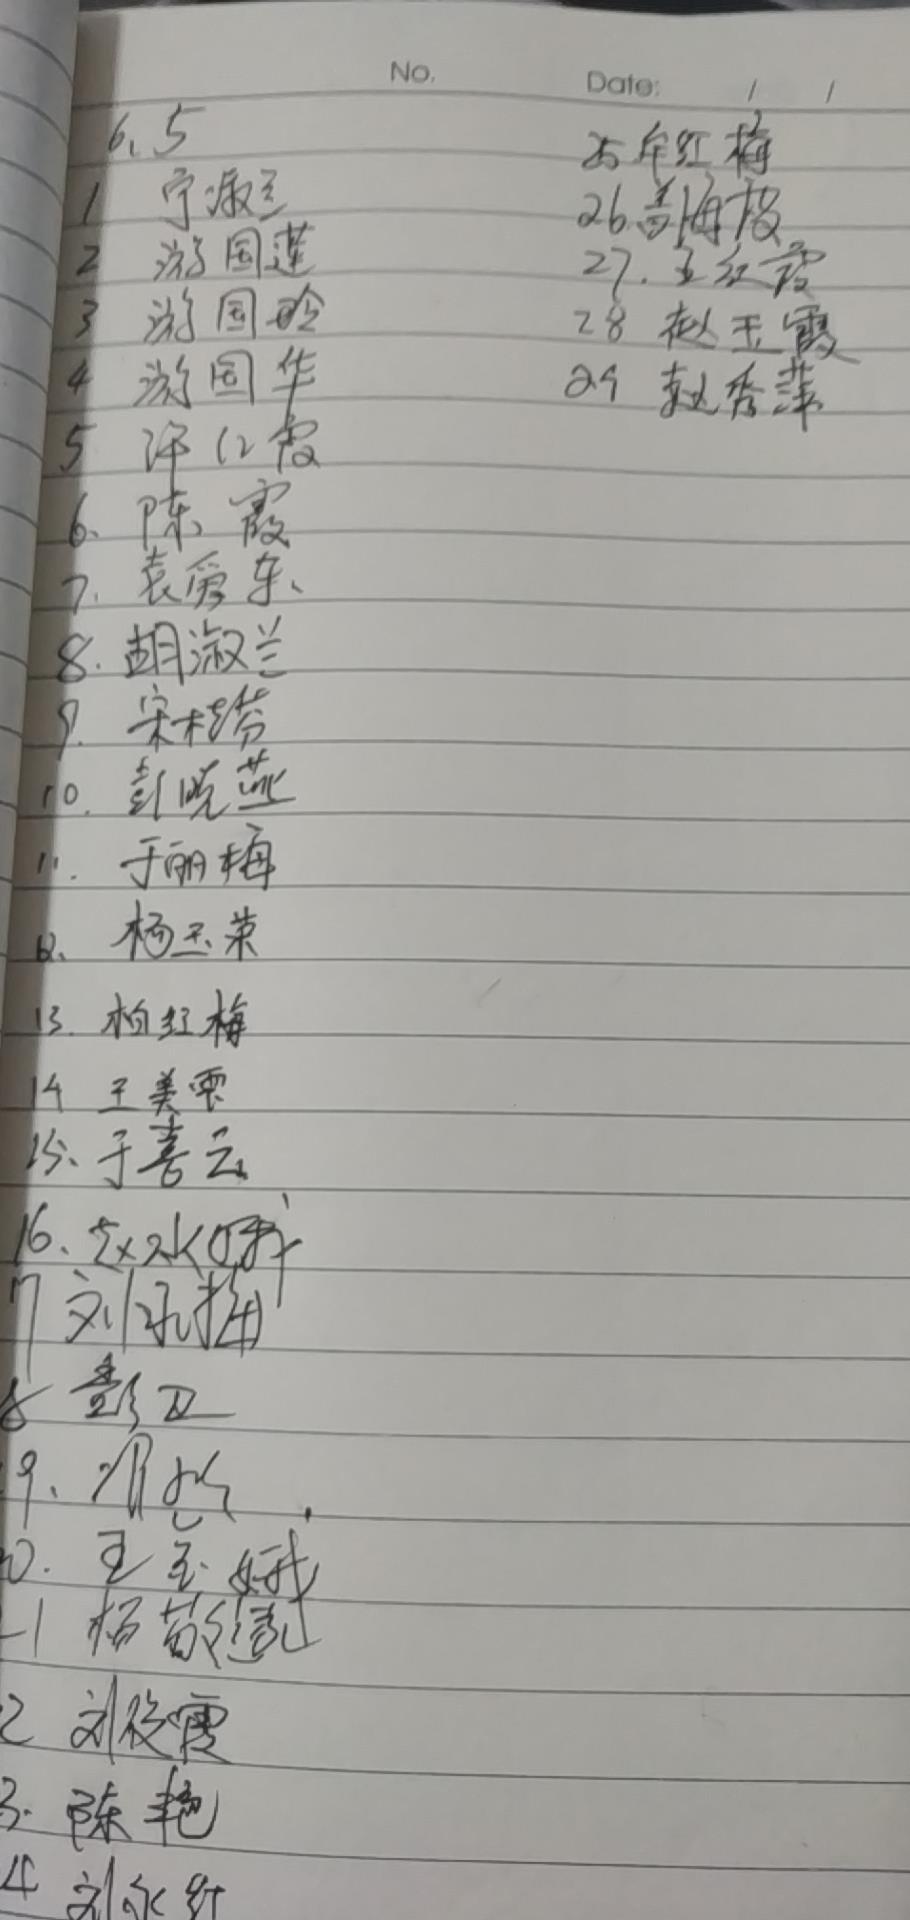 No.
Date: / /
6.5
1 宁淑兰
2 游国莲
3 游国玲
4 游国华
5 许红霞
6. 陈霞
7. 袁爱东
8. 胡淑兰
9. 宋桂芬
10. 彭晓燕
11. 于丽梅
12. 杨玉荣
13. 柏红梅
14 王美云
15. 于喜云
16. 赵永娥
17 刘永梅
8 彭卫
19.
20. 王玉娥
21 杨敬
2 刘俊霞
3. 陈艳
4 刘永红
25 牟红梅
26 海霞
27. 王红霞
28 赵玉霞
29 赵秀萍